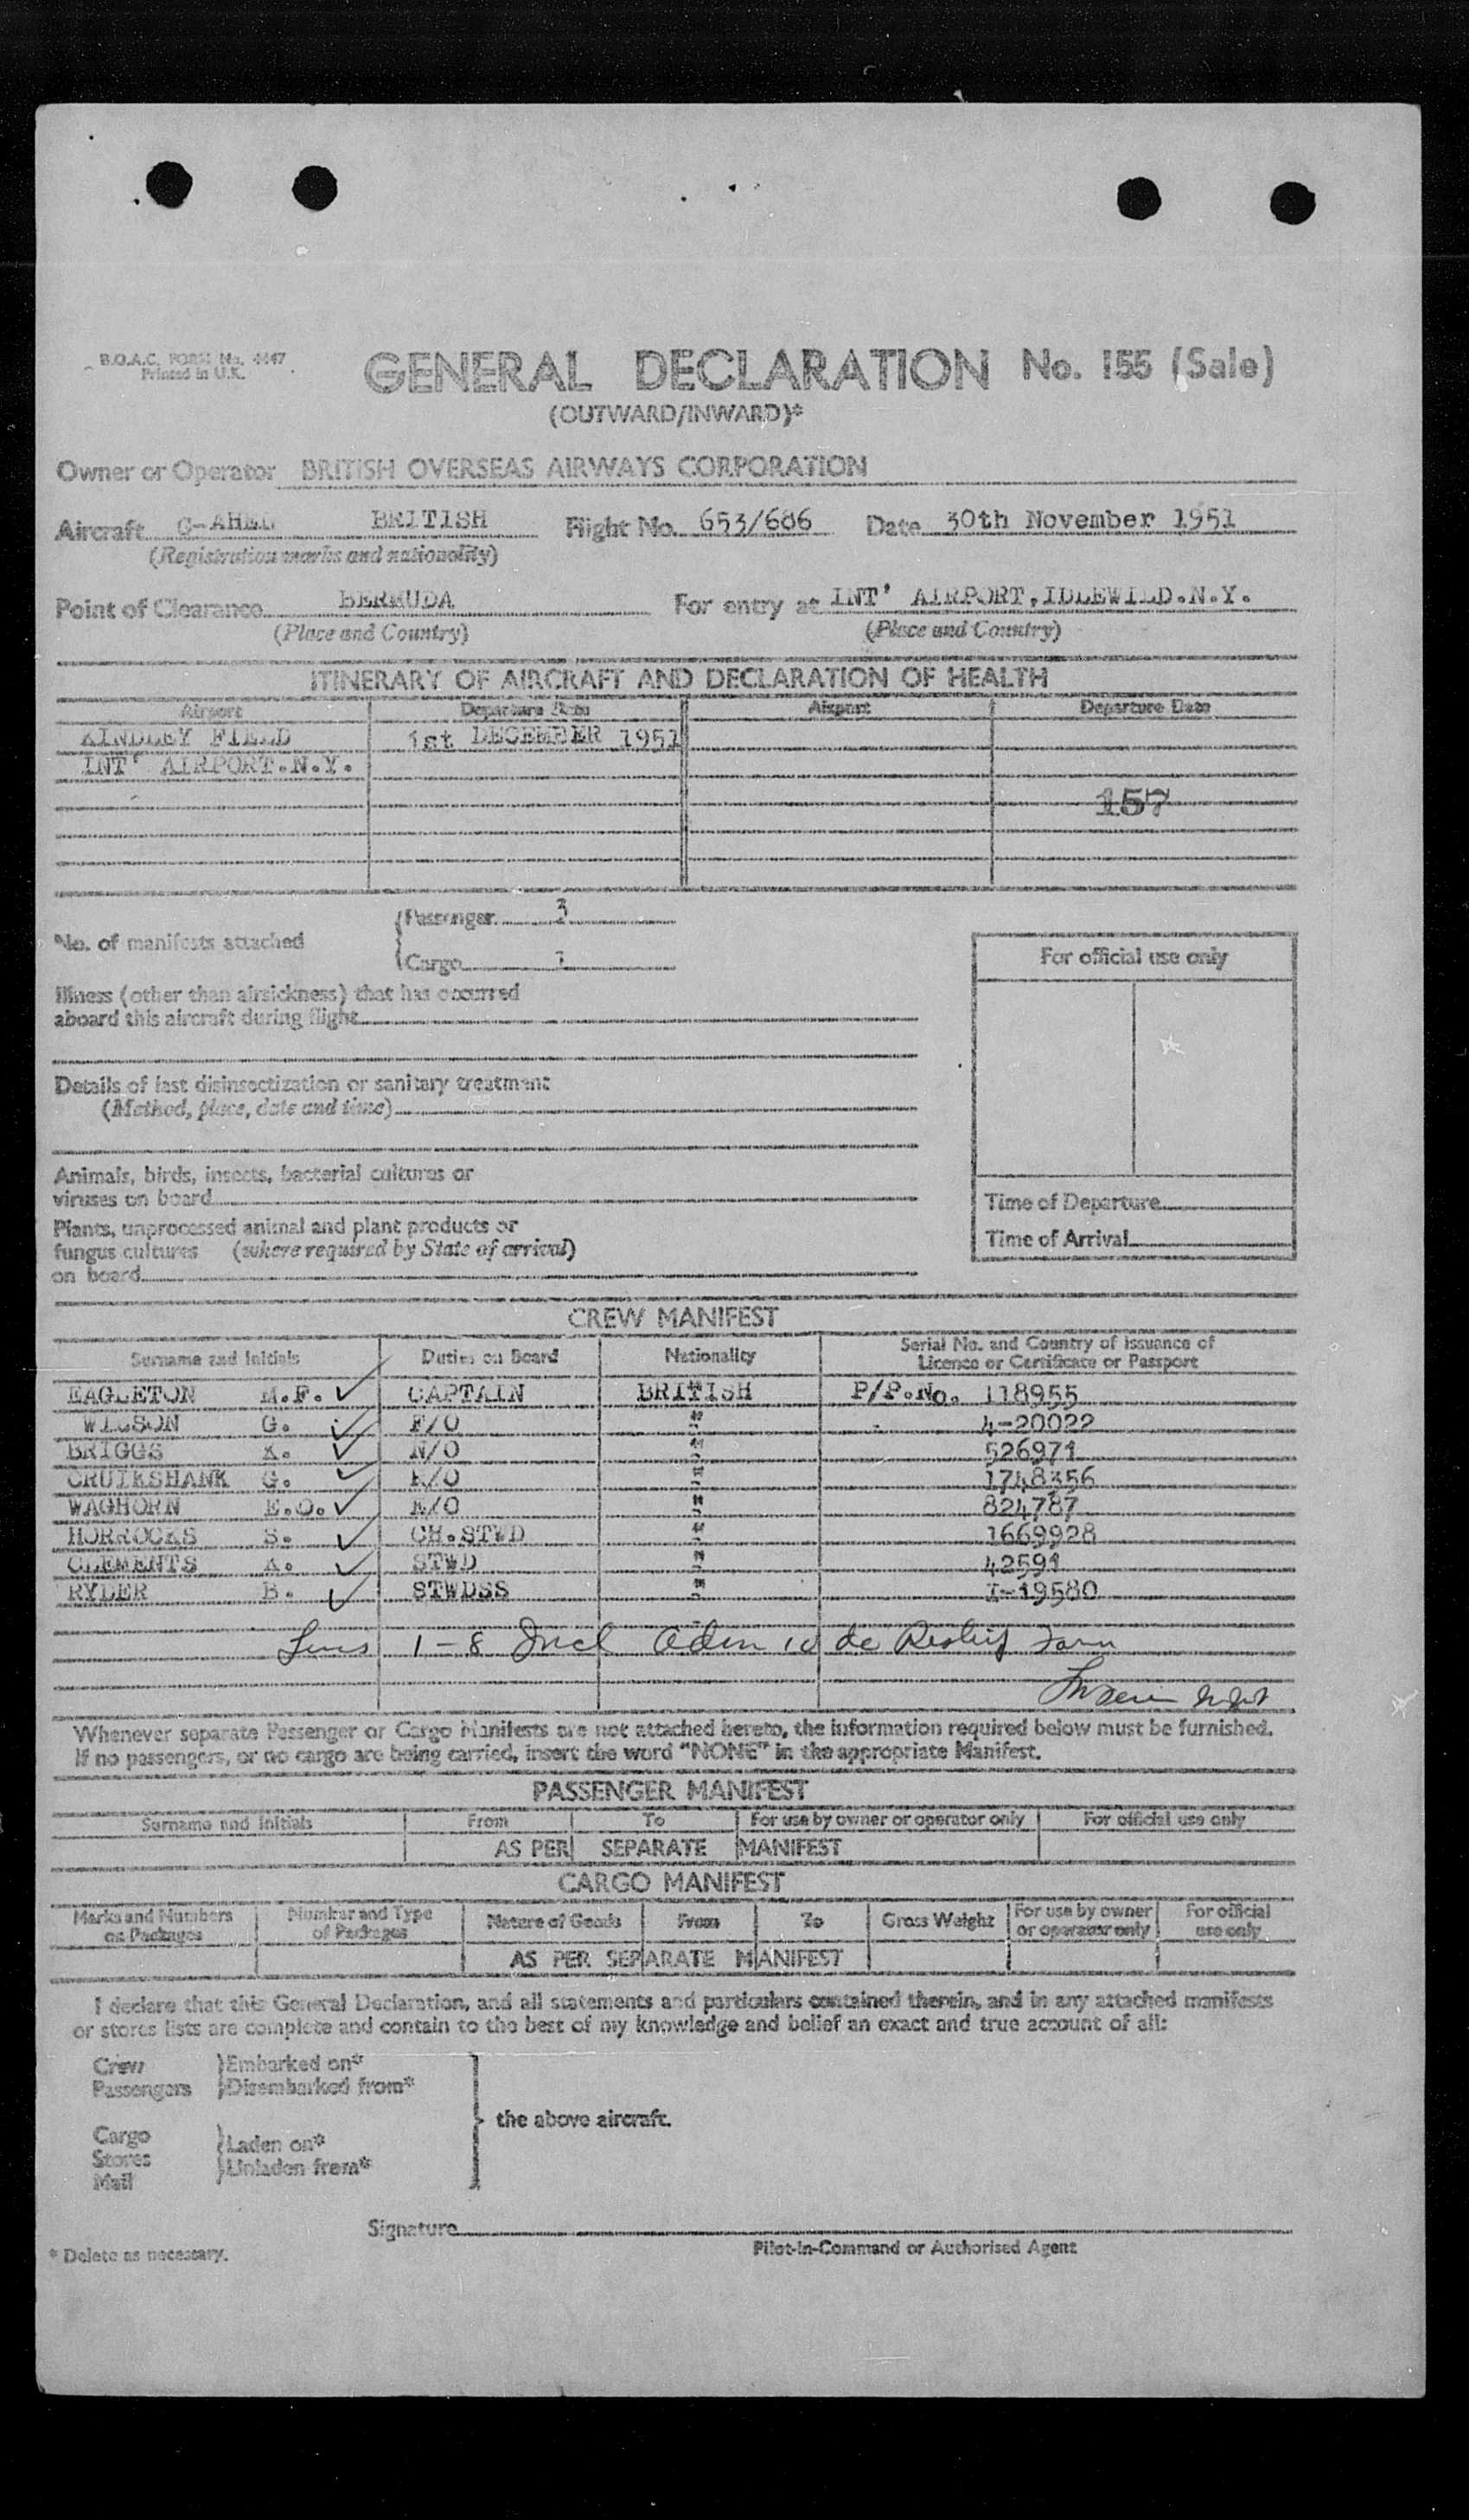 B.O.A.C. FORM No. 4447
Printed in U.K.
GENERAL DECLARATION No. 155 (Sale)
(OUTWARD/INWARD)*
Owner or Operator BRITISH OVERSEAS AIRWAYS CORPORATION
Aircraft BRITISH Flight No. 653/686 Date 30th November 1951
(Registration marks and nationality)
Point of Clearance BERMUDA For entry at INT' AIRPORT,IDLEWILD.N.Y.
(Place and Country) (Place and Country)
ITINERARY OF AIRCRAFT AND DECLARATION OF HEALTH
Airport Departure Date Airport Departure Date
KINDLEY FIELD 1st DECEMBER 1951
INT' AIRPORT.N.Y.
157
No. of manifests attached
Passenger 3
Cargo 1
Illness (other than airsickness) that has occurred
aboard this aircraft during flight
Details of last disinsectization or sanitary treatment
(Method, place, date and time)
Animals, birds, insects, bacterial cultures or
viruses on board
Plants, unprocessed animal and plant products or
fungus cultures (where required by State of arrival)
on board
For official use only
Time of Departure
Time of Arrival
CREW MANIFEST
Surname and Initials Duties on Board Nationality Serial No. and Country of Issuance of
Licence or Certificate or Passport
EAGLETON M.F. CAPTAIN BRITISH P/P.No. 118955
WILSON G. F/O " 4-20022
BRIGGS K. N/O " 526971
CRUIKSHANK G. " 1748356
WAGHORN E.O. " 824787
HORROCKS S. CH.STWD " 1669928
CLEMENTS K. STWD " 42591
RYDER B. STWDSS " I-19580
1-8 Incl
Whenever separate Passenger or Cargo Manifests are not attached hereto, the information required below must be furnished.
If no passengers, or no cargo are being carried, insert the word "NONE" in the appropriate Manifest.
PASSENGER MANIFEST
Surname and Initials From To For use by owner or operator only For official use only
AS PER SEPARATE MANIFEST
CARGO MANIFEST
Marks and Numbers on Packages Number and Type of Packages Nature of Goods From To Gross Weight For use by owner or operator only For official use only
AS PER SEPARATE MANIFEST
I declare that this General Declaration, and all statements and particulars contained therein, and in any attached manifests
or stores lists are complete and contain to the best of my knowledge and belief an exact and true account of all:
Crew Embarked on*
Passengers Disembarked from*
the above aircraft.
Cargo
Stores Laden on*
Mail Unladen from*
Signature
* Delete as necessary. Pilot-in-Command or Authorised Agent